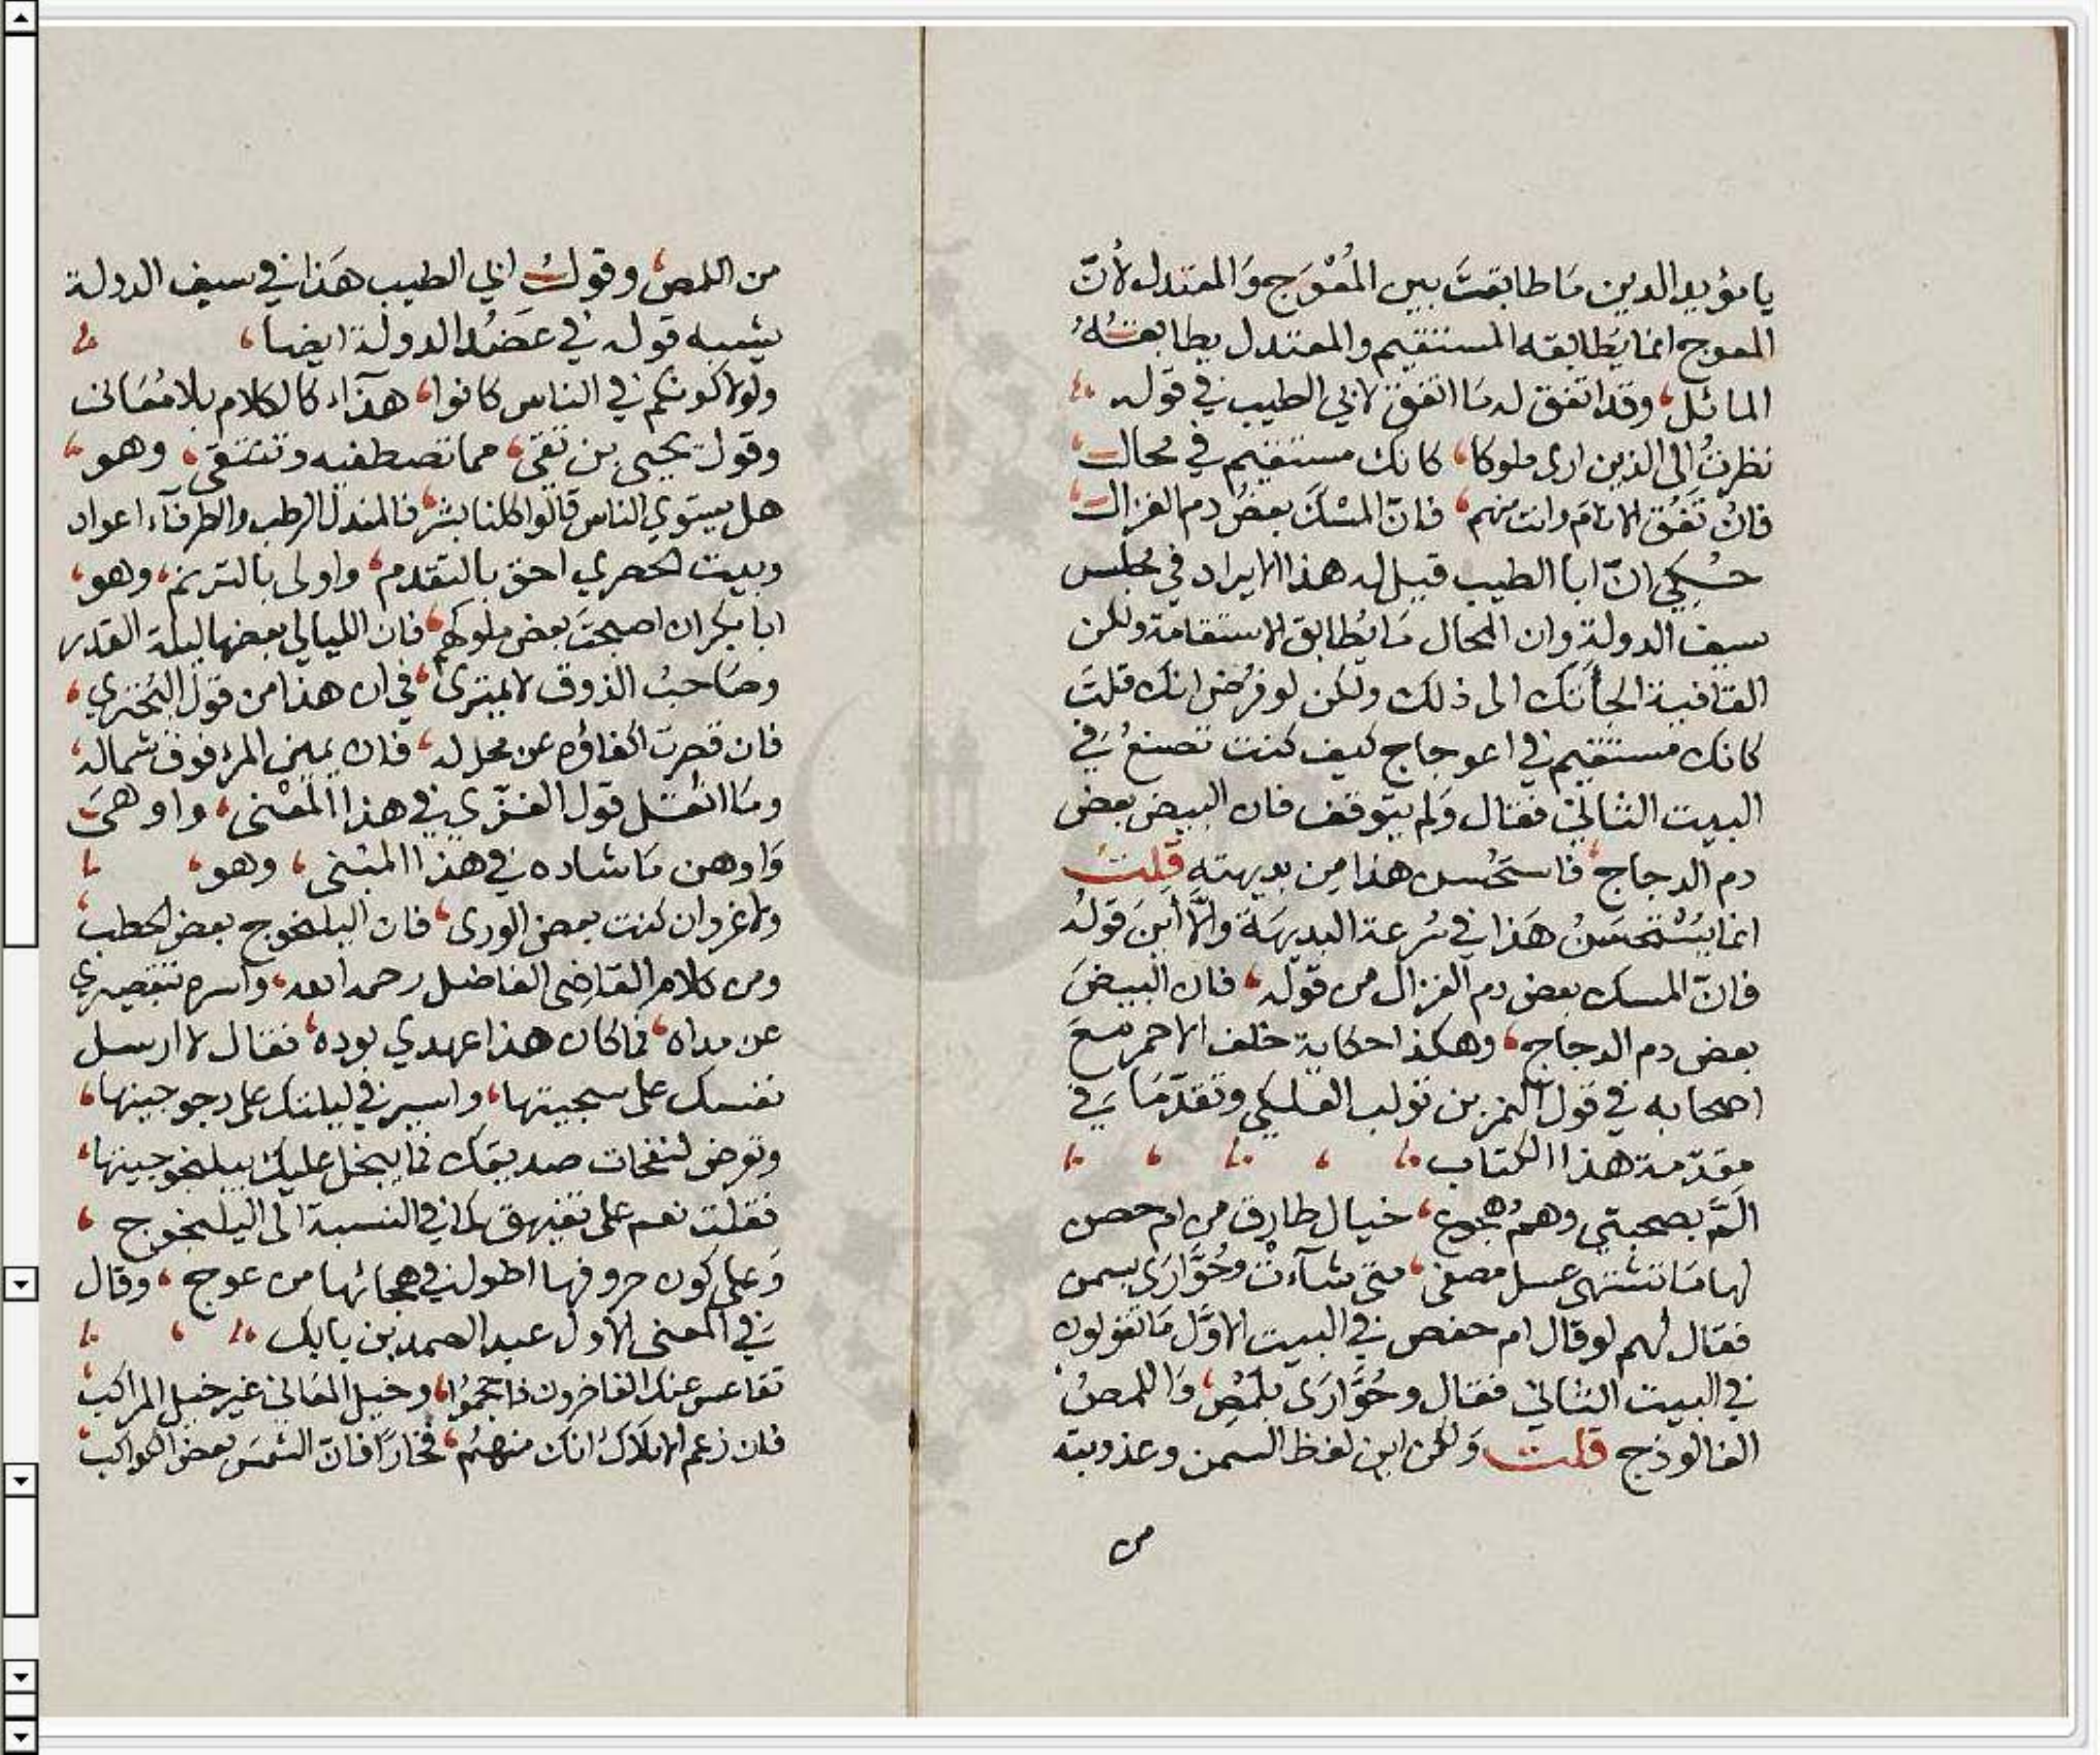 يا مؤيد الدين مَا طابقتَ بين المُعْوَج وَالمعتدل لأنّ
المعوج انما يُطابقه المستقيم والمعتدل يطابقهُ
المائل، وقد اتفق له مَا اتفق لابي الطيب في قوله
نظرتُ الى الذين ارى ملوكا، كانك مستقيم في محال
فانْ تَفُق الانامَ وانت منهم، فانّ المسْكَ بعضُ دم الغزال
حُكِيَ انّ ابا الطيب قيل له هذا الايراد في مجلس
سيف الدولة وان المحال مَا يُطابق الاستقامة ولكن
القافية الجأتك الى ذلك ولكن لو فرُض انك قلتَ
كانك مستقيم في اعوجاج كيف كنت تصنعُ في
البيت الثاني فقال وَلم يتوقف فان البيض بعض
دم الدجاج، فاستحْسن هذا مِن بديهته قلت
انما يُسْتحسَنُ هَذا في سُرعة البديهَة وَالاّ أينَ قولهُ
فانّ المسك بعض دم الغزال من قوله، فان البيضَ
بعض دم الدجاج، وهكذا حكاية خلف الاحمر مَعَ
اصحابه في قول النمر بن تولب العكلي وتقدّمَا في
مقدّمة هذا الكتاب
المَّ بصحبتي وهمُ هُجوع، خيال طارق من ام حصن
لها مَا تشتهى عسل مصفى، متى شآءتْ وحُوَّارَى بسمن
فقال لهم لو قال ام حفص في البيت الاوّل مَا تقولون
في البيت الثاني فقال وحُوَّارَى بلَمْصِ، وَاللمصُ
الفالوذج قلت وَلكن اين لفظ السمن وعذوبته
من
من اللمص، وقول ابي الطيب هَذا في سيف الدولة
يشبه قوله في عَضُد الدولة ايضا،
ولولا كونكم في الناس كانوا، هذآء كالكلام بلا مُعَانى
وقول يحيى بن تقى، مما تصطفيه وتنتقى، وهو
هل يستوي الناس قالوا كلنا بشر، فالمندل الرطب والطرفآء اعواد
وبيت الحصري احق بالتقدم، واولى بالترنم، وهو
ابا بكران اصبحتَ بعض ملوكهم، فان الليالي بعضها ليلة القدر
وصَاحبُ الذوق لا يمترى، في ان هذا من قول البُحتري
فان قصرت اكفاؤه عن محله، فان يمين المرء فوق شماله
ومَا اثقل قول الغزّي في هذا المعْنى، واوهى
وَاوهن مَا شاده في هذا المبْنى، وهو
ولا غروان كنت بعض الورى، فان اليلنجوج بعض الحطب
ومن كلام القاضى الفاضل رحمه الله، واسره تقصيري
عن مداه، فما كان هذا عهدي بوده، فقال لا ارسل
نفسك على سجيتها، واسر في ليلتك على دجوجيتها،
وتعرض لنفحات صديقك فما يبخل عليك بيلنجوجيتها،
فقلت نعم على تفيهق كما في النسبة الى اليلنجوج
وَعلى كون حروفها اطول في هجائها من عوج، وقال
في المعنى الاول عبد الصمد بن بابك
تقاعس عنك الفاخرون فاحجموُا، وخيل المعَاني غير خيل المراكب
فان زعم الاملاكُ انك منهمُ، فخارًا فانّ الشمسَ بعض الكواكب